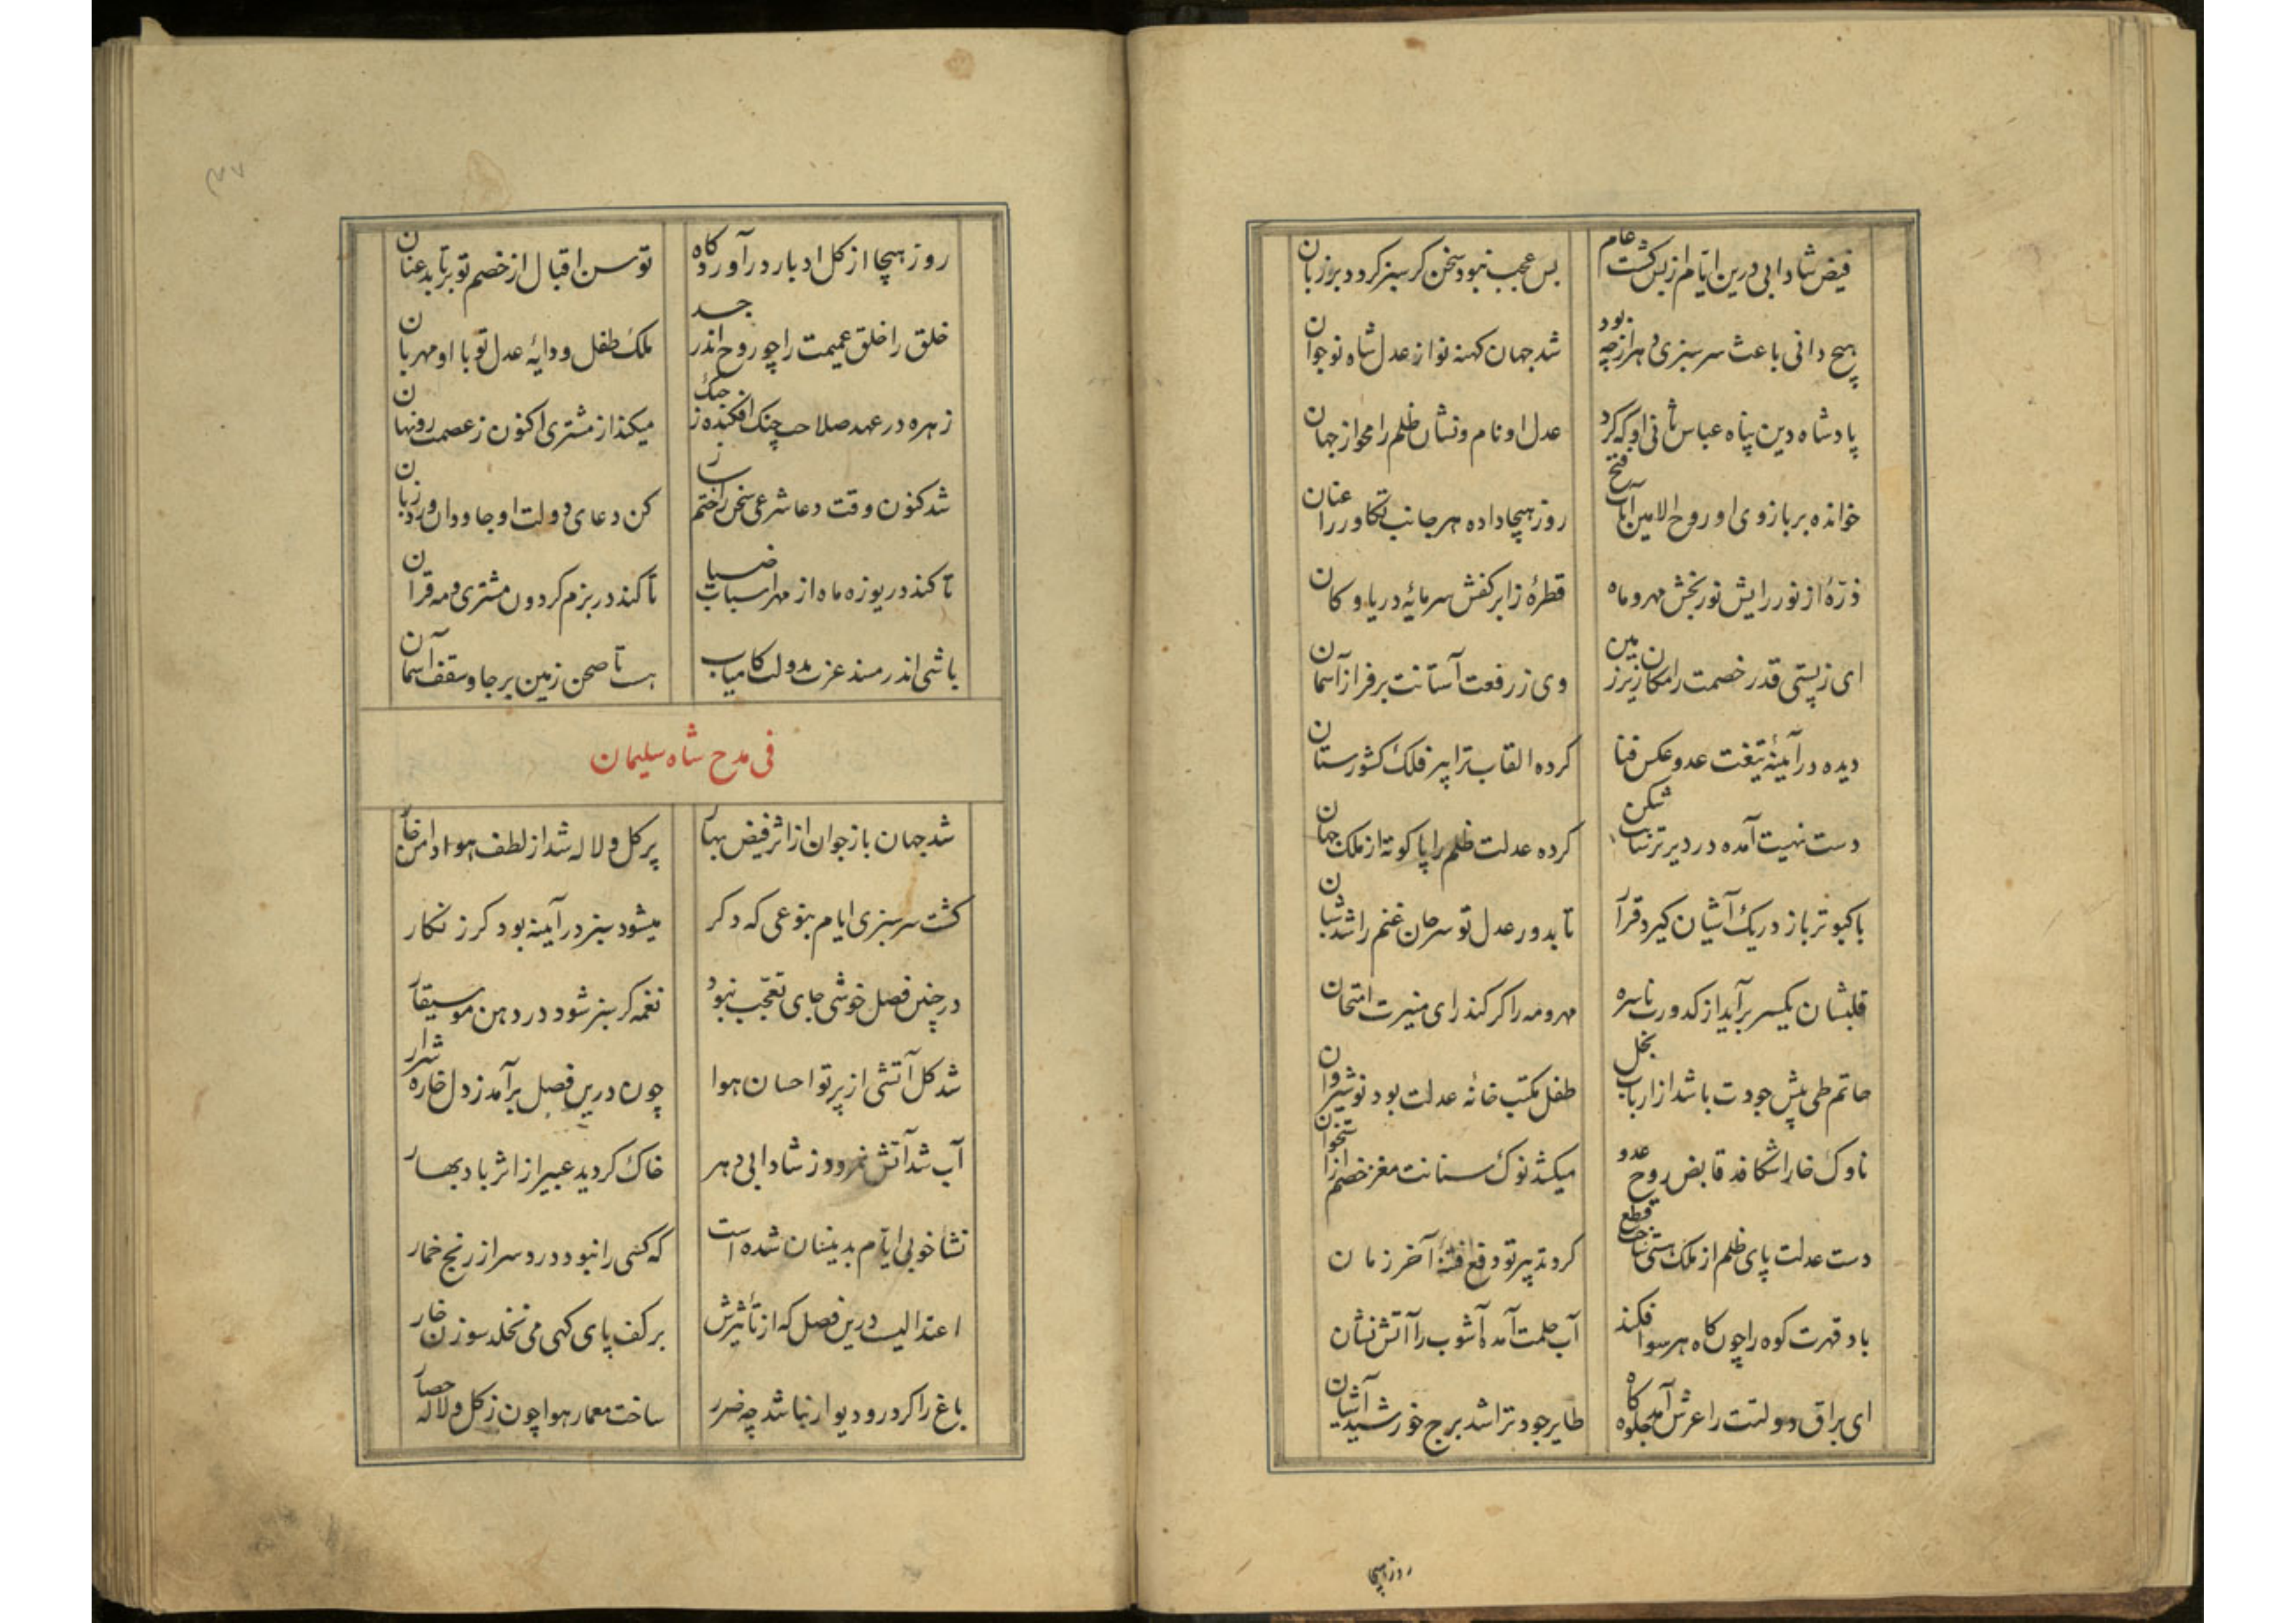 فیض شادابی درین ایام از بس گشت عام
بس عجب نبود سخن کر سبز کردد بر زبان
هیچ دانی باعث سرسبزی دهر از چه بود
شد جهان کهنه نو از عدل شاه نوجوان
پادشاه دین پناه عباس ثانی او که کرد
عدل او نام و نشان ظلم را محو از جهان
خوانده بر بازوی او روح الامین آیات فتح
روز هیجا داده هر جانب تکاور را عنان
ذرّهٔ از نور رایش نور بخش مهر و ماه
قطرهٔ ز ابر کفش سرمایهٔ دریا و کان
ای ز پستی قدر خصمت را مکان زیر زمین
وی ز رفعت آستانت بر فراز آسمان
دیده در آیینهٔ تیغت عدو عکس فنا
کرده القاب ترا پیر فلک کشورستان
دست نهیت آمده در دیر ترسا بت شکن
کرده عدلت ظلم را پا کوته از ملک جهان
با کبوتر باز در یک آشیان کیرد قرار
تا بدور عدل تو سرحان غنم را شد شبان
قلبشان یکسر برآید از کدورت ناسره
مهر و مه را کر کند رای منیرت امتحان
حاتم طی پیش جودت باشد از ارباب بخل
طفل مکتب خانهٔ عدلت بود نوشیروان
ناوک خارا شکافد قابض روح عدو
میکشد نوک سنانت مغز خصم از استخوان
دست عدلت پای ظلم از ملک هستی ساخت قطع
کرد تدبیر تو دفع فتنهٔ آخر زمان
باد قهرت کوه را چون کاه هر سو افکند
آب حلمت آمده آشوب را آتش نشان
ای براق دولتت را عرش آمد جلوه کاه
طایر جود ترا شد برج خورشید آشیان
روز هیجا
روز هیجا از کل ادبار در آورد کاه
توسن اقبال از خصم تو برتابد عنان
خلق را خلق عمیمت را چو روح اندر جسد
ملک طفل و دایهٔ عدل تو با او مهربان
زهره در عهد صلاحت چنک افکنده ز چنک
میکند از مشتری اکنون ز عصمت رو نهان
شد کنون وقت دعا شرعی سخن را ختم ساز
کن دعای دولت او جاودان ورد زبان
تا کند دریوزه ماه از مهر اسباب ضیا
تا کند در بزم کردون مشتری و مه قران
باشی اندر مسند عزت بدولت کامیاب
هست تا صحن زمین بر جا و سقف آسمان
فی مدح شاه سلیمان
شد جهان باز جوان از اثر فیض بهار
پر کل و لاله شد از لطف هوا دامن خار
کشت سرسبزی ایام بنوعی که دکر
میشود سبز در آیینه بود کر زنکار
در چنین فصل خوشی جای تعجّب نبود
نغمه کر سبز شود در دهن موسیقار
شد کل آتشی از پرتو احسان هوا
چون درین فصل برآمد ز دل خاره شرار
آب شد آتش نمرود ز شادابی دهر
خاک کردید عبیر از اثر باد بهار
نشا خوبی ایام بدینسان شده است
که کسی را نبود درد سر از رنج خمار
اعتدالیست درین فصل که از تأثیرش
بر کف پای کسی می نخلد سوزن خار
باغ را کر در و دیوار نباشد چه ضرر
ساخت معمار هوا چون ز کل و لاله حصار